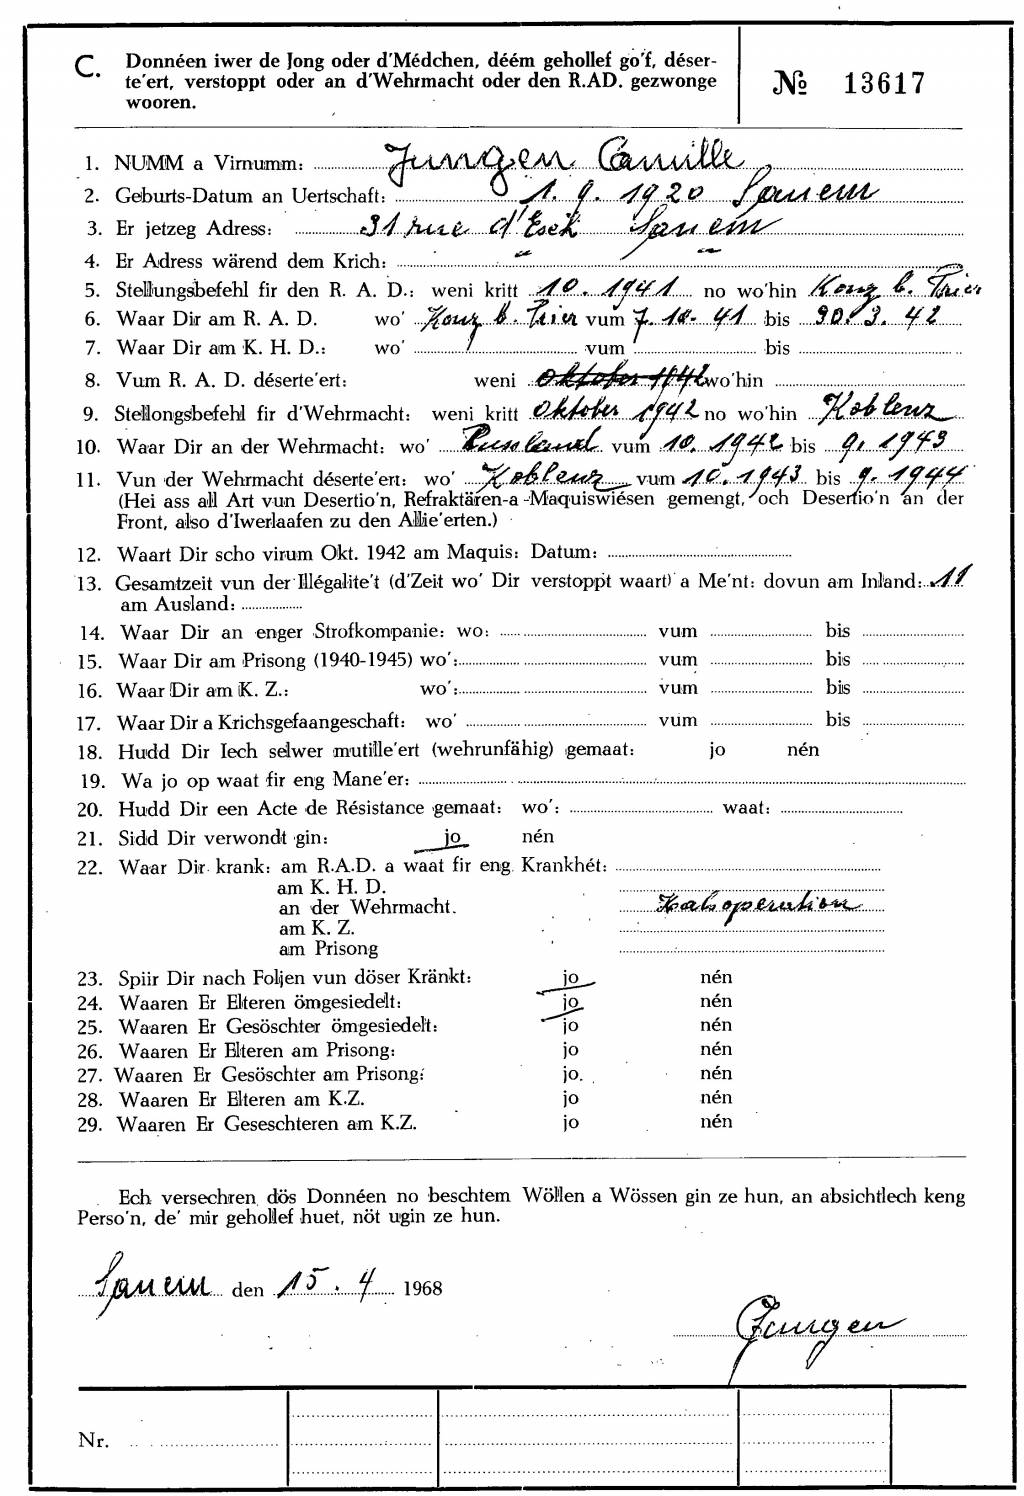 C. Donnéen iwer de Jong oder d'Médchen, déém gehollef go'f, déser-
te'ert, verstoppt oder an d'Wehrmacht oder den R.AD. gezwonge
wooren.
№ 13617
1. NUMM a Virnumm: Jungen Camille
2. Geburts-Datum an Uertschaft: 1. 9. 1920 Sanem
3. Er jetzeg Adress: 31 rue d'Esch Sanem
4. Er Adress wärend dem Krich: " "
5. Stellungsbefehl fir den R. A. D.: weni kritt 10. 1941 no wo'hin Konz b. Trier
6. Waar Dir am R. A. D. wo' Konz b. Trier vum 7. 10. 41 bis 30. 3. 42
7. Waar Dir am K. H. D.: wo' vum bis
8. Vum R. A. D. déserte'ert: weni Oktober 1942 wo'hin
9. Stellongsbefehl fir d'Wehrmacht: weni kritt Oktober 1942 no wo'hin Koblenz
10. Waar Dir an der Wehrmacht: wo' Russland vum 10. 1942 bis 9. 1943
11. Vun der Wehrmacht déserte'ert: wo' Koblenz vum 10. 1943 bis 9. 1944
(Hei ass all Art vun Desertio'n, Refraktären-a -Maquiswiésen gemengt, och Desertio'n an der
Front, also d'Iwerlaafen zu den Allie'erten.)
12. Waart Dir scho virum Okt. 1942 am Maquis: Datum:
13. Gesamtzeit vun der Illégalite't (d'Zeit wo' Dir verstoppt waart) a Me'nt: dovun am Inland: 11
am Ausland:
14. Waar Dir an enger Strofkompanie: wo: vum bis
15. Waar Dir am Prisong (1940-1945) wo': vum bis
16. Waar Dir am K. Z.: wo': vum bis
17. Waar Dir a Krichsgefaangeschaft: wo' vum bis
18. Hudd Dir Iech selwer mutille'ert (wehrunfähig) gemaat: jo nén
19. Wa jo op waat fir eng Mane'er:
20. Hudd Dir een Acte de Résistance gemaat: wo': waat:
21. Sidd Dir verwondt gin: jo nén
22. Waar Dir krank: am R.A.D. a waat fir eng Krankhét:
am K. H. D.
an der Wehrmacht. Halsoperation
am K. Z.
am Prisong
23. Spiir Dir nach Foljen vun döser Kränkt: jo nén
24. Waaren Er Elteren ömgesiedelt: jo nén
25. Waaren Er Gesöschter ömgesiedelt: jo nén
26. Waaren Er Elteren am Prisong: jo nén
27. Waaren Er Gesöschter am Prisong: jo. nén
28. Waaren Er Elteren am K.Z. jo nén
29. Waaren Er Geseschteren am K.Z. jo nén
Ech versechren dös Donnéen no beschtem Wöllen a Wössen gin ze hun, an absichtlech keng
Perso'n, de' mir gehollef huet, nöt ugin ze hun.
Sanem den 15. 4 1968
Jungen
Nr.